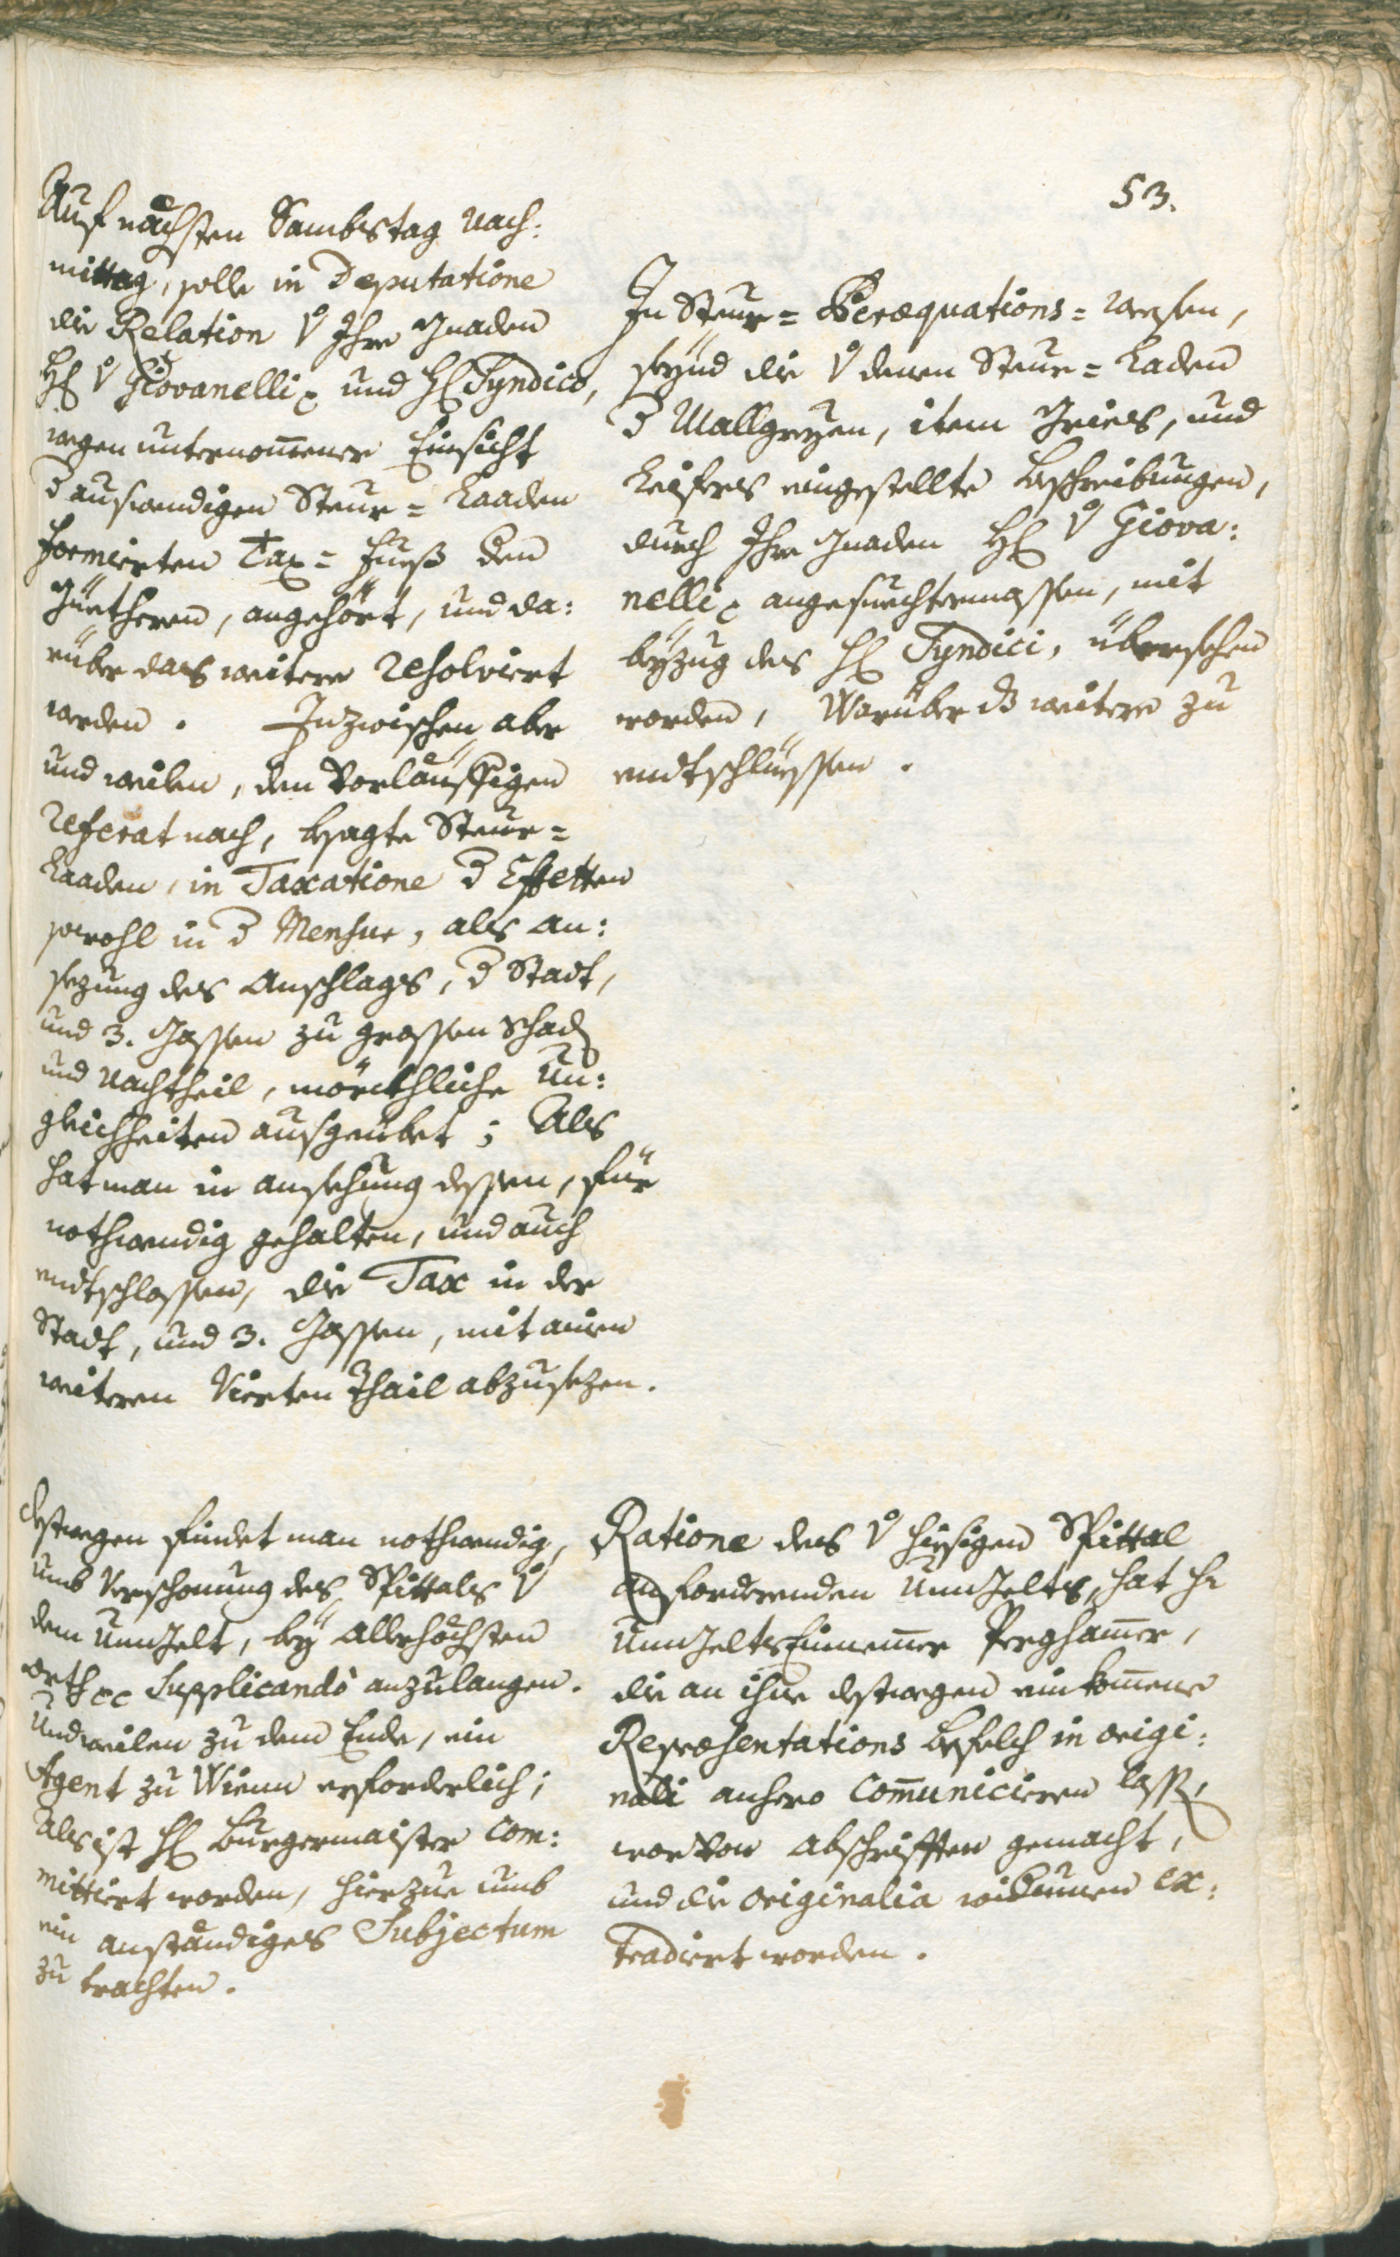 53.
Auf nächsten Sambstag nach:
mittag, solle in Deputatione
die Relation v Ihre Gnaden
H v Giovanelli und H Syndico,
wegen unternom̄ener Einsicht
d auswendigen Steur= Laaden
formierten Tax= Fueß den
Güettheren, angehört, und da:
rüber das weitere resolviert
werden. Inzwischen aber
und weilen, dem vorläuffigen
Referat nach, besagte Steur=
Laaden, in Taxatione d Effetten
sowohl in d Mensur, als an:
sezung des Anschlags, d Statt,
und 3. Gassen zu grossen Schad
und Nachtheil, mörckhliche Un:
gleichheiten ausgeübet; Als
hat man in ansehung dessen, für
nothwendig gehalten, und auch
endtschlossen, die Tax in der
Statt, und 3. Gassen, mit ainen
weiteren Vierten Thail abzusezen.
In Steur= Peræquations= weesen,
seynd die v denen Steur= Laden
d Wallgreyen, item Gries, und
Leifers eingestellte Beschreibungen,
durch Ihre Gnaden H v Giova:
nelli angesuechtermassen, mit
beyzug des H Syndici, übersehen
worden, Warüber dz weitere zu
endtschlüessen.
destwegen findet man nothwendig,
umb Verschonung des Spittals v
dem Umbgelt, bey Allerhöchsten
orth Supplicando anzulangen.
Und weilen zu dem Ende, ein
Agent zu Wienn erforderlich;
Als ist H Burgermaister com:
mittiert worden, hierzue umb
ein anständiges Subjectum
zu trachten.
Ratione des v hiesigen Spittal
anforderenden Umbgelts, hat H
Umbgelts Einnem̄er Perghamer,
die an ihne destwegen einkom̄ene
Repræsentations Befelch in origi:
nali anhero com̄unicieren lass,
worvon Abschrifften gemacht,
und die originalia widerumen ex:
tradiert worden.